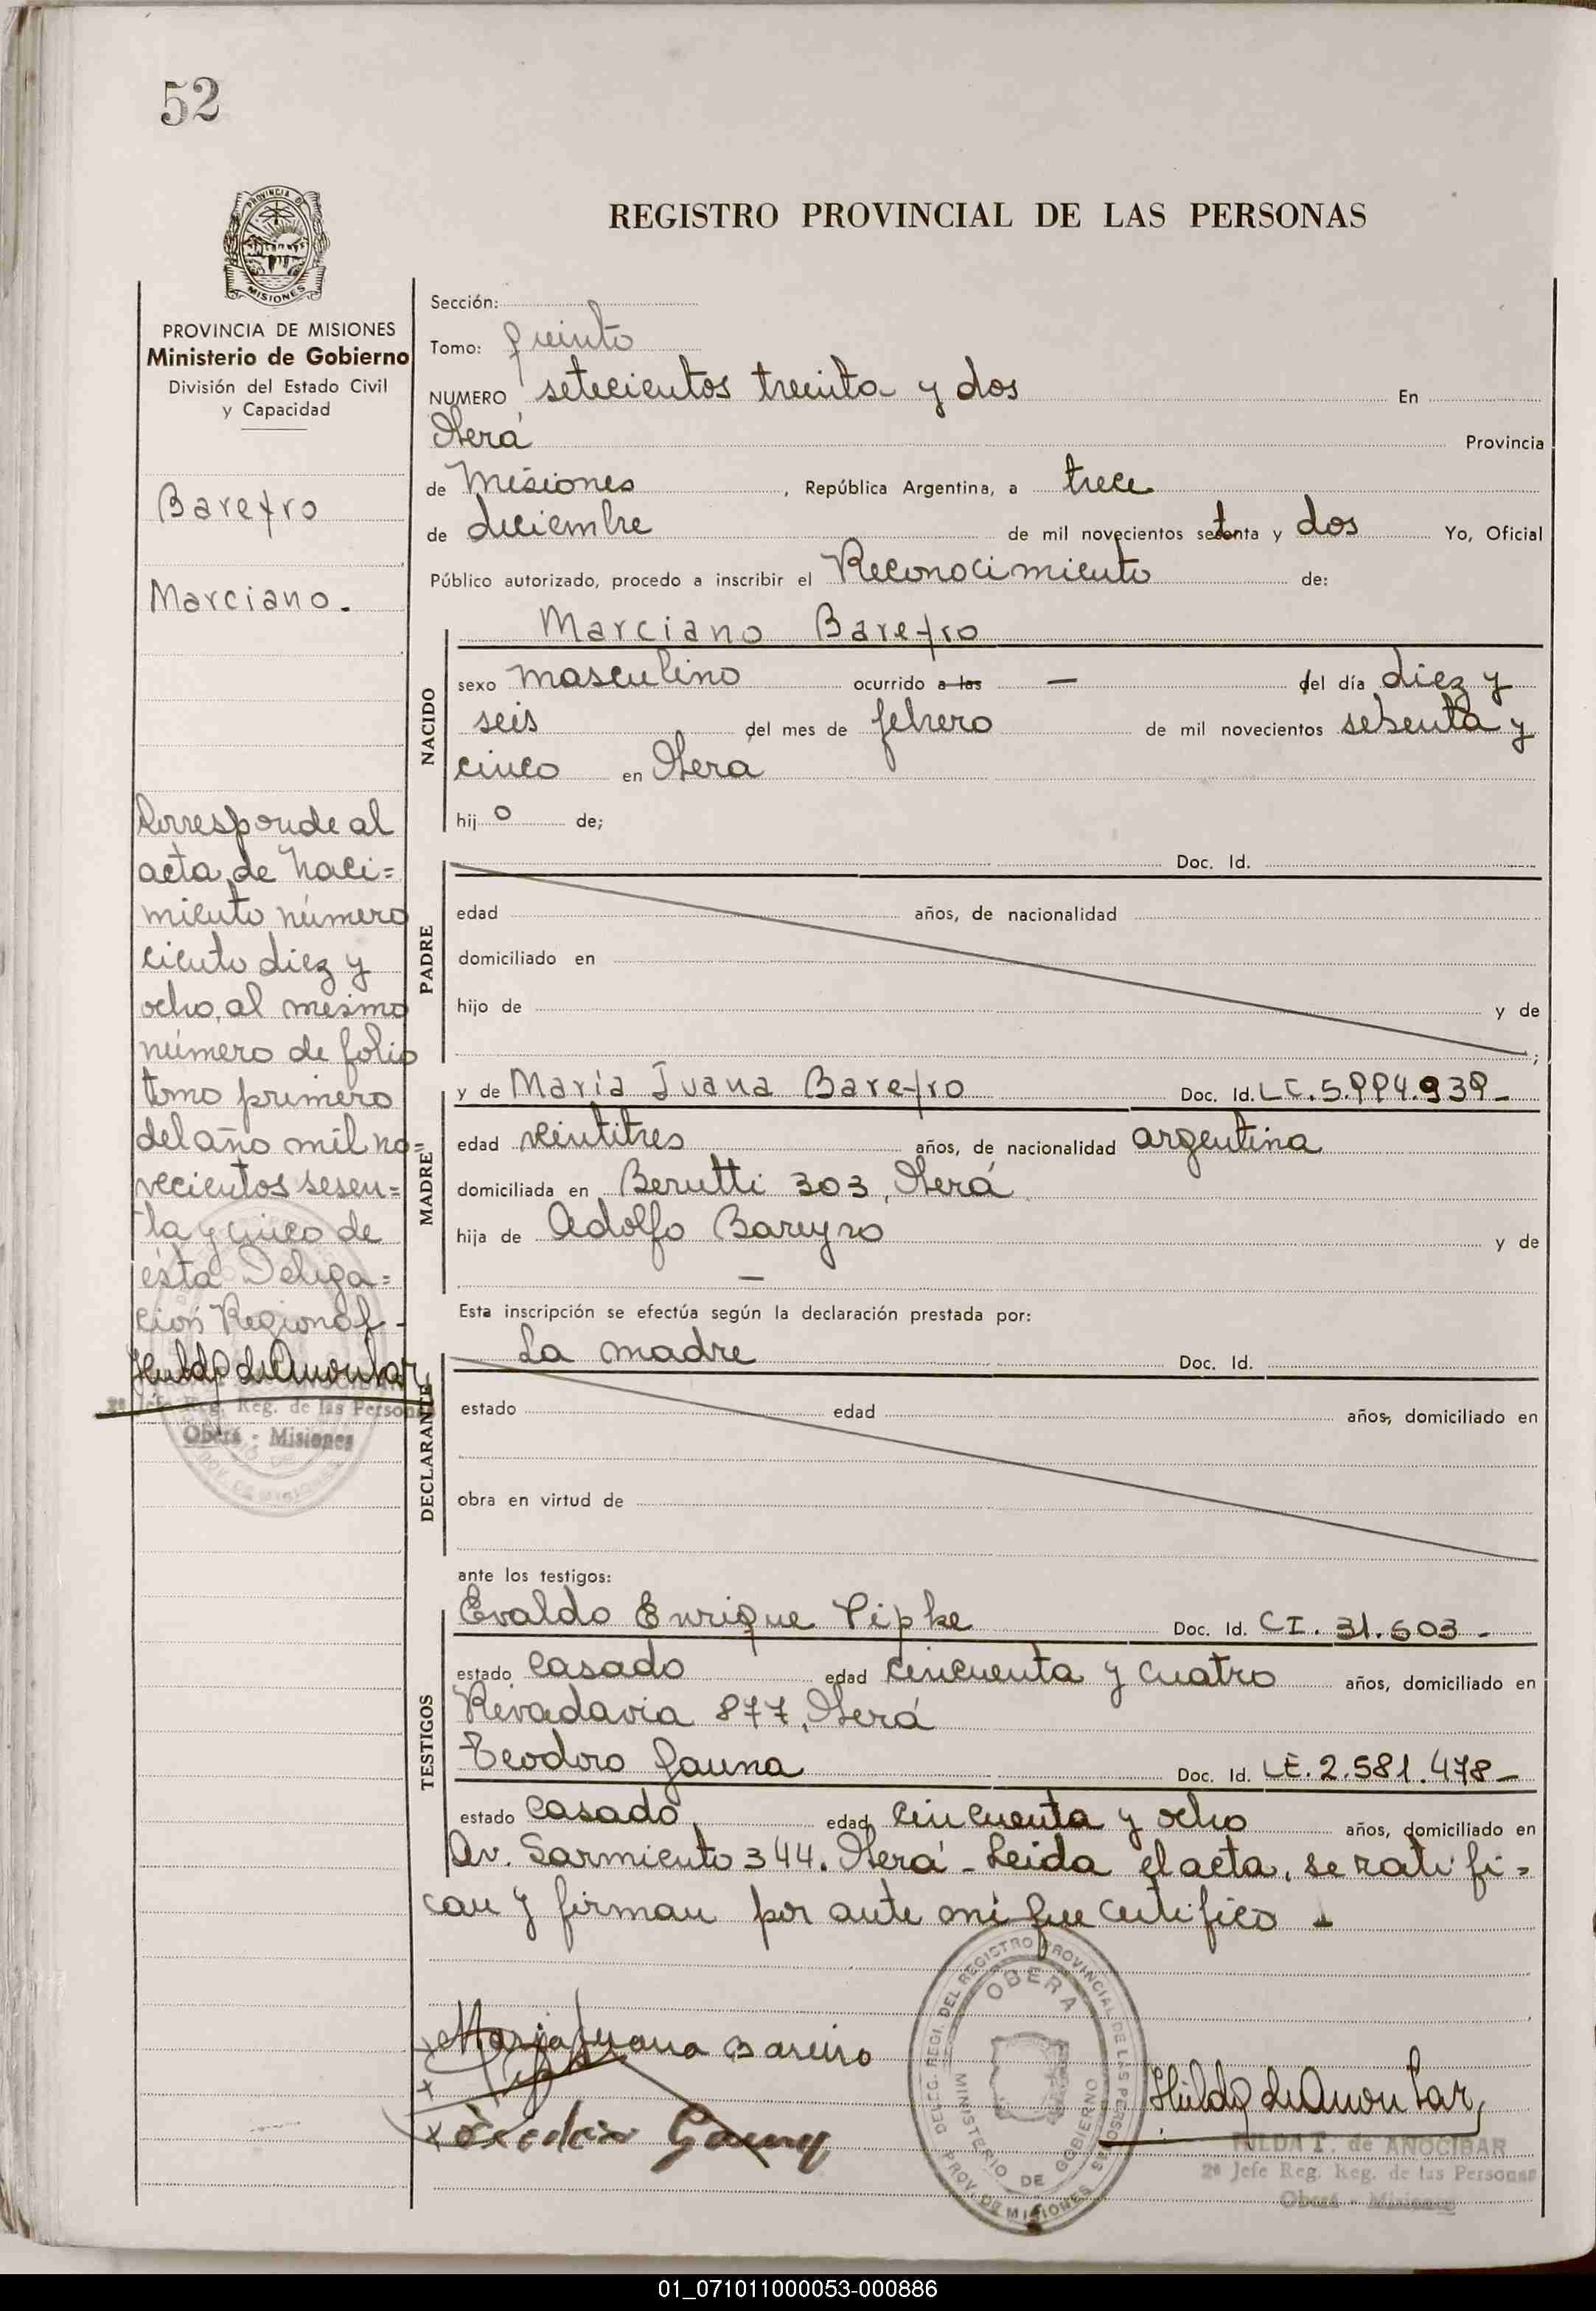 52
PROVINCIA DE MISIONES
REGISTRO PROVINCIAL DE LAS PERSONAS
PROVINCIA DE MISIONES
Ministerio de Gobierno
División del Estado Civil
y Capacidad
Bareyro
Marciano.
Corresponde al
acta de naci=
miento número
ciento diez y
ocho, al mismo
número de folio
tomo primero
del año mil no=
vecientos sesen=
ta y cinco de
esta Delega=
ción Regional -
2ª Jefe Reg. Reg. de las Personas
Oberá - Misiones
Sección:
Tomo: quinto
NUMERO setecientos treinta y dos En
Oberá Provincia
de Misiones , República Argentina, a trece
de diciembre de mil novecientos setenta y dos Yo, Oficial
Público autorizado, procedo a inscribir el Reconocimiento de:
NACIDO
Marciano Bareyro
sexo masculino ocurrido a las — del día diez y
seis del mes de febrero de mil novecientos sesenta y
cinco en Oberá
hij o de;
PADRE
Doc. Id.
edad años, de nacionalidad
domiciliado en
hijo de y de
;
MADRE
y de María Juana Bareyro Doc. Id. LC. 5.994.939-
edad veintitres años, de nacionalidad argentina
domiciliada en Berutti 303, Oberá
hija de Adolfo Bareyro y de
—
Esta inscripción se efectúa según la declaración prestada por:
DECLARANTE
La madre Doc. Id.
estado edad años, domiciliado en
obra en virtud de
ante los testigos:
TESTIGOS
Evaldo Enrique Pipke Doc. Id. CI. 31.603-
estado casado edad cincuenta y cuatro años, domiciliado en
Rivadavia 877, Oberá
Teodoro Gauna Doc. Id. LE. 2.581.478-
estado casado edad cincuenta y ocho años, domiciliado en
Av. Sarmiento 344. Oberá - Leida el acta, se ratifi=
can y firman por ante mí que certifico -
María Juana Bareiro
Teodoro Gauna
DELEG. REGI. DEL REGISTRO PROVINCIAL DE LAS PERSONAS
OBERA
MINISTERIO DE GOBIERNO
PROV. DE MISIONES
Hilda de Anocibar
HILDA T. de AÑOCIBAR
2ª Jefe Reg. Reg. de las Personas
Oberá - Misiones
01_071011000053-000886